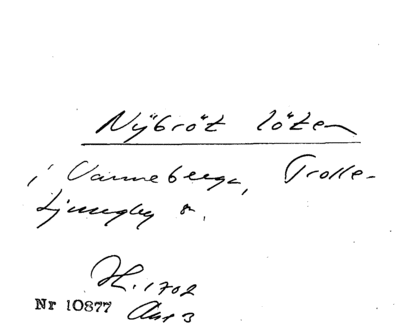 Nÿbröt löten
i Vanneberga, Trolle-
Ljungby s.
H. 1702
Nr 10877 Akt 3